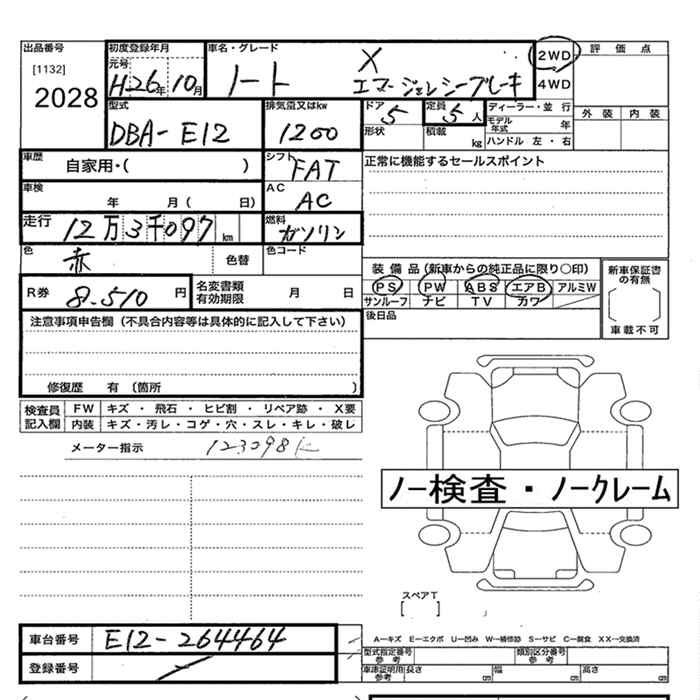 出品番号 初度登録年月 車名・グレード 評価点
[1132] 元号 X 2WD
2028 H26年 10月 ノート エマージェンシーブレーキ 4WD
型式 排気量又はkw ドア 定員 ディーラー・並行 外装 内装
DBA-E12 1200 5 5人 モデル年式 年
形状 積載 kg ハンドル 左・右
車歴 自家用・( ) シフト FAT 正常に機能するセールスポイント
車検 年 月( 日) AC AC
走行 12万3千097km 燃料 ガソリン
色 赤 色替 色コード
装備品(新車からの純正品に限り○印) 新車保証書の有無
R券 8.510円 名変書類有効期限 月 日 PS PW ABS エアB アルミW
サンルーフ ナビ TV カワ
注意事項申告欄(不具合内容等は具体的に記入して下さい) 後日品 車載不可
修復歴 有(箇所 )
検査員 FW キズ・飛石・ヒビ割・リペア跡・X要
記入欄 内装 キズ・汚レ・コゲ・穴・スレ・キレ・破レ
メーター指示 123098K
ノー検査・ノークレーム
スペアT
[ ]
車台番号 E12-264464
登録番号
A−キズ E−エクボ U−凹み W−補修跡 S−サビ C−腐食 XX−交換済
型式指定番号 参考 類別区分番号 参考
車庫証明用 参考 長さ cm 幅 cm 高さ cm